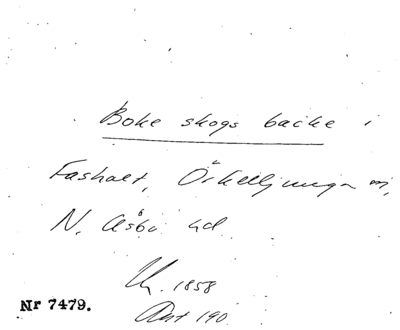 Boke skogs backe i
Fashalt, Örkelljunga sn,
N. Åsbo hd
1858
Nr 7479.
190